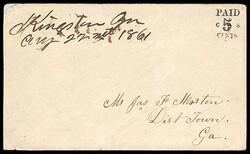 Kingston Ga
Aug 22nd 1861
PAID
5
CENTS
Mr Jas F Morton.
Dist Town,
Ga.